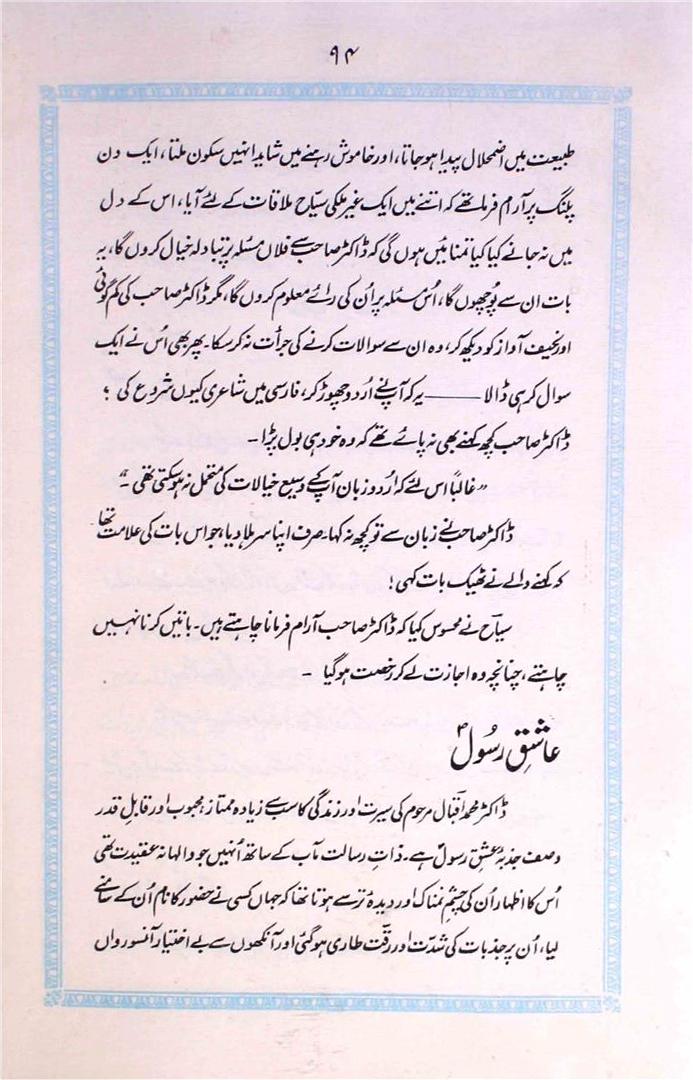 ۹۴
طبیعت میں اضمحلال پیدا ہو جاتا، اور خاموش رہنے میں شاید انہیں سکون ملتا، ایک دن
پلنگ پر آرام فرما تھے کہ اتنے میں ایک غیر ملکی سیّاح ملاقات کے لئے آیا، اس کے دل
میں نہ جانے کیا کیا تمنائیں ہوں گی کہ ڈاکٹر صاحب سے فلاں مسئلہ پر تبادلہ خیال کروں گا، یہ
بات ان سے پُوچھوں گا، اُس مسئلہ پر اُن کی رائے معلوم کروں گا، مگر ڈاکٹر صاحب کی کم گوئی
اور نحیف آواز کو دیکھ کر، وہ ان سے سوالات کرنے کی جرأت نہ کر سکا۔ پھر بھی اُس نے ایک
سوال کر ہی ڈالا ——— یہ کہ آپ نے اُردو چھوڑ کر، فارسی میں شاعری کیوں شروع کی ؟
ڈاکٹر صاحب کچھ کہنے بھی نہ پائے تھے کہ وہ خود ہی بول پڑا۔
"غالباً اس لئے کہ اُردو زبان آپ کے وسیع خیالات کی متحمل نہ ہو سکتی تھی۔"
ڈاکٹر صاحب نے زبان سے تو کچھ نہ کہا۔ صرف اپنا سر ہلا دیا، جو اس بات کی علامت تھا
کہ کہنے والے نے ٹھیک بات کہی!
سیّاح نے محسوس کیا کہ ڈاکٹر صاحب آرام فرمانا چاہتے ہیں۔ باتیں کرنا نہیں
چاہتے، چنانچہ وہ اجازت لے کر رخصت ہو گیا۔
عاشقِ رسُولؐ
ڈاکٹر محمد اقبال مرحوم کی سیرت اور زندگی کا سب سے زیادہ ممتاز، محبوب اور قابلِ قدر
وصف جذبۂ عشقِ رسولؐ ہے۔ ذاتِ رسالت مآب کے ساتھ اُنہیں جو والہانہ عقیدت تھی
اُس کا اظہار اُن کی چشمِ نمناک اور دیدۂ تر سے ہوتا تھا کہ جہاں کسی نے حضورؐ کا نام اُن کے سامنے
لیا، اُن پر جذبات کی شدّت اور رقّت طاری ہو گئی اور آنکھوں سے بے اختیار آنسو رواں